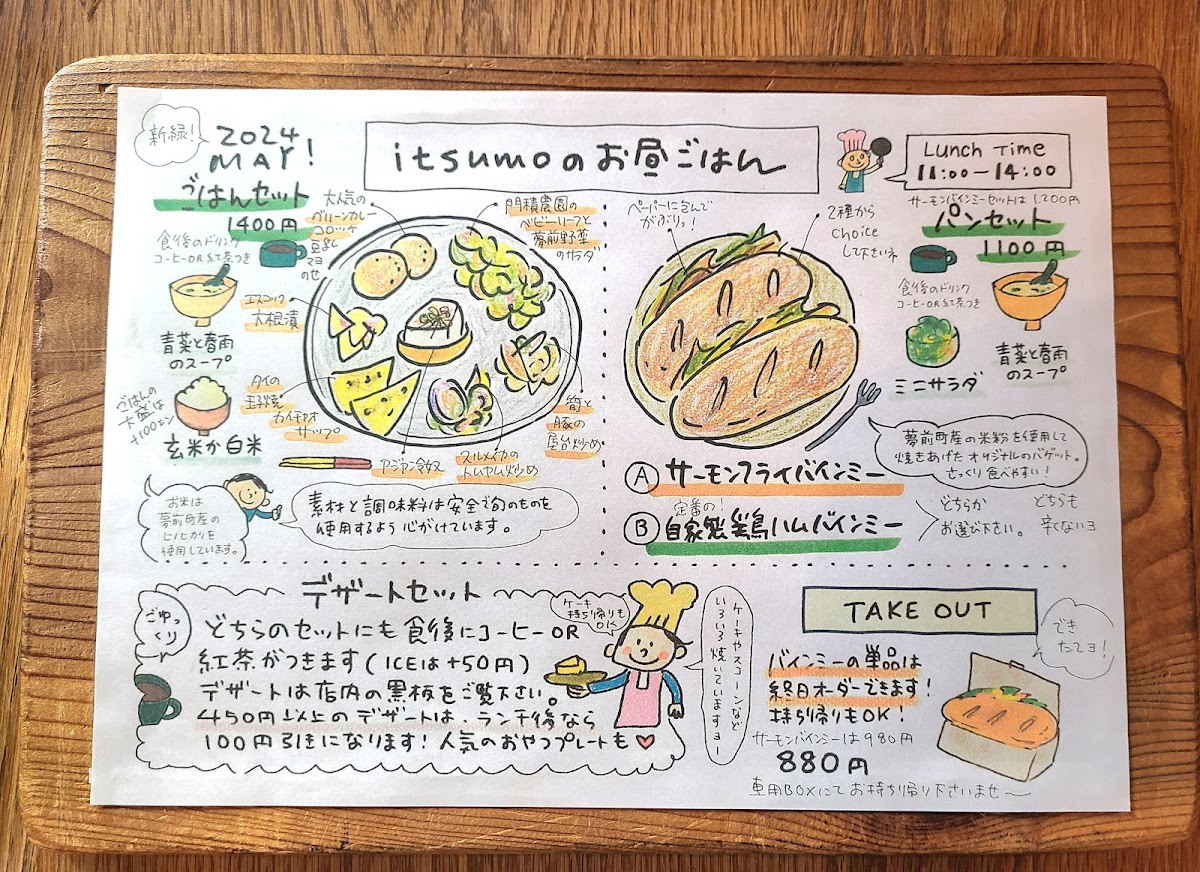 新緑!
2024
MAY!
itsumoのお昼ごはん
Lunch Time
11:00-14:00
ごはんセット
1400円
食後のドリンク
コーヒーOR紅茶つき
青菜と春雨
のスープ
ごはんの
大盛は
+100エン
玄米か白米
大人気の
グリーンカレー
コロッケ
豆乳
マヨ
のせ
門積農園の
ベビーリーフと
夢前野菜
のサラダ
エスニック
大根漬
タイの
玉子焼
カイチャオ
サップ
アジアン冷奴
スルメイカの
トムヤム炒め
筍と
豚の
屋台炒め
お米は
夢前町産の
ヒノヒカリを
使用しています。
素材と調味料は安全で旬のものを
使用するよう心がけています。
サーモンバインミーセットは1,200円
パンセット
1100円
ペーパーに包んで
がぶりっ!
2種から
choice
して下さいネ
食後のドリンク
コーヒーOR紅茶つき
ミニサラダ
青菜と春雨
のスープ
夢前町産の米粉を使用して
焼きあげたオリジナルのバゲット。
さっくり食べやすい!
Ⓐ サーモンフライバインミー
定番の!
Ⓑ 自家製鶏ハムバインミー
どちらか
お選び下さい。
どちらも
辛くないヨ
デザートセット
ごゆっくり
どちらのセットにも食後にコーヒーOR
紅茶がつきます(ICEは+50円)
デザートは店内の黒板をご覧下さい。
450円以上のデザートは、ランチ後なら
100円引きになります!人気のおやつプレートも♥
ケーキ
持ち帰りも
OK
ケーキやスコーンなど
いろいろ焼いていますョー
TAKE OUT
でき
たてヨ!
バインミーの単品は
終日オーダーできます!
持ち帰りもOK!
サーモンバインミーは980円
880円
専用BOXにてお持ち帰り下さいませ〜